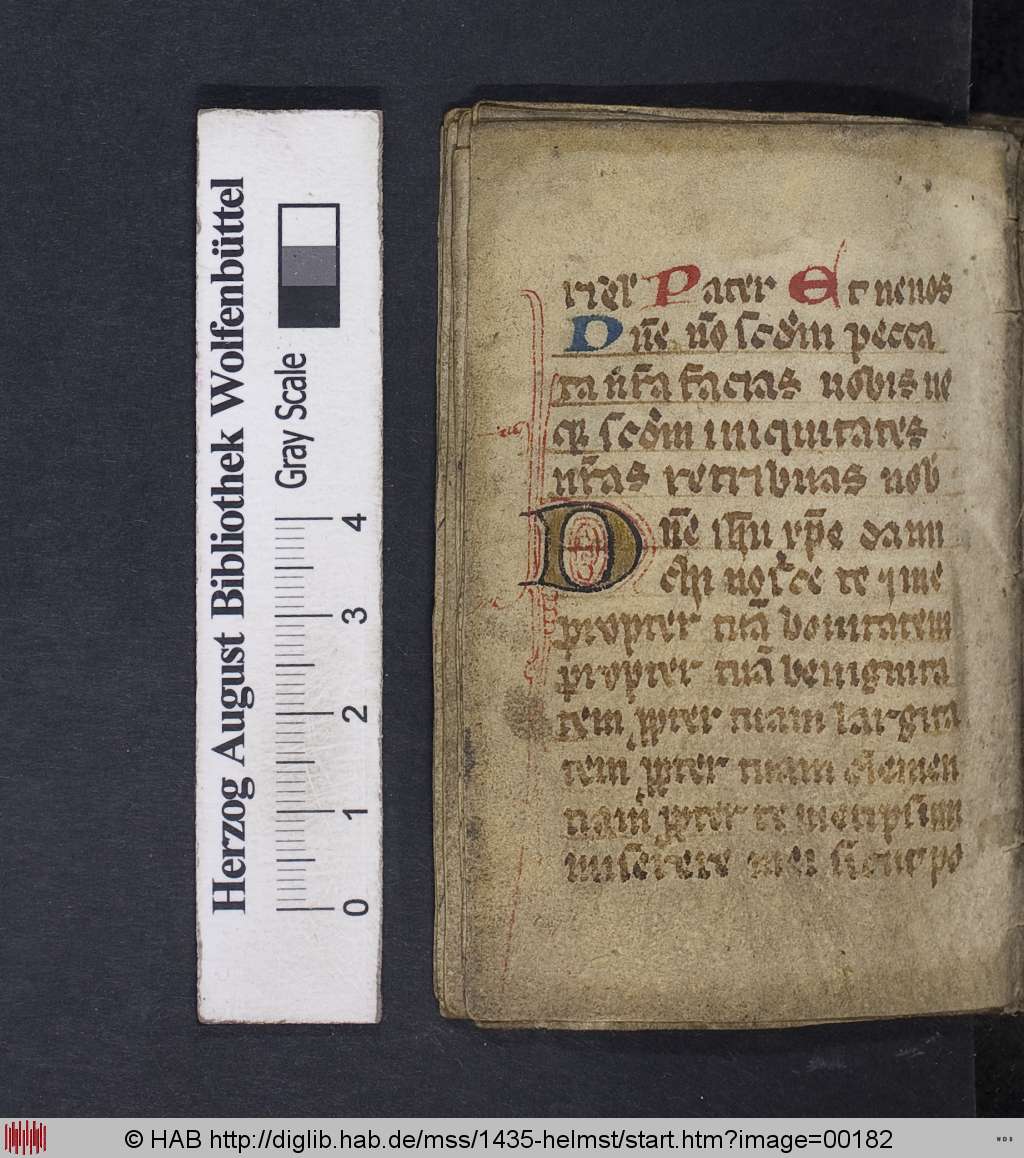 Herzog August Bibliothek Wolfenbüttel
Gray Scale
0 1 2 3 4
Pater Et nenos
Dn̄e nō scd̄m pecca
ta nr̄a facias nobis ne
qꝫ scd̄m iniquitates
nr̄as retribuas nob
Dn̄e ih̄u xp̄e da mi
chi noſce te ⁊ me
propter tuā bonitatem
propter tuā benignita
tem ꝓpter tuam largita
tem ꝓpter tuam clemen
tiam ꝓpter te metipſum
miſerere mei ſicut po
© HAB http://diglib.hab.de/mss/1435-helmst/start.htm?image=00182